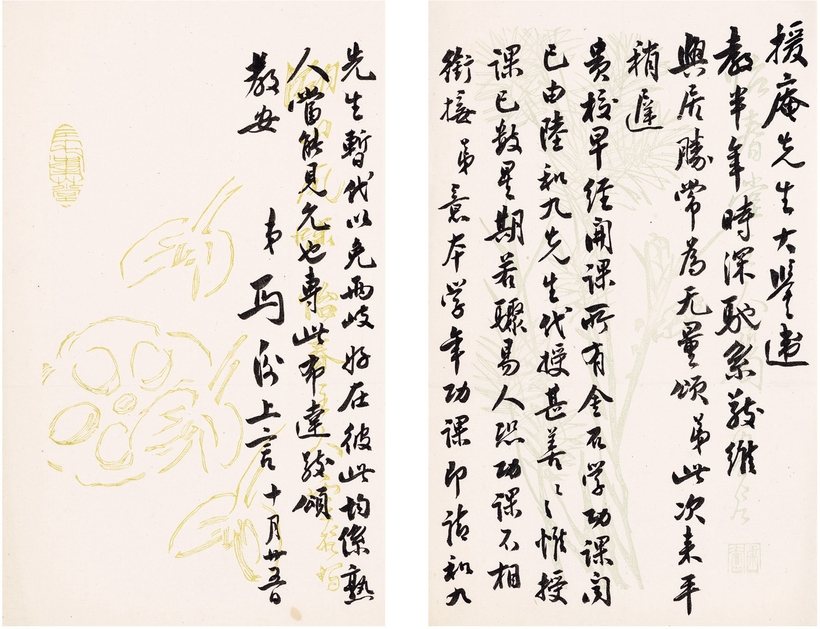 援庵先生大鑒違
教半年時深馳系敬維
興居勝常為无量頌弟此次来平
稍遲
貴校早經開課所有金石学功課聞
已由陸和九先生代授甚善〻惟授
課已数星期若驟易人恐功課不相
銜接弟意本学年功課即請和九
先生暫代以免兩歧好在彼此均係熟
人當能見允也專此布達敬頌
教安
弟馬衡上言十月廿五日